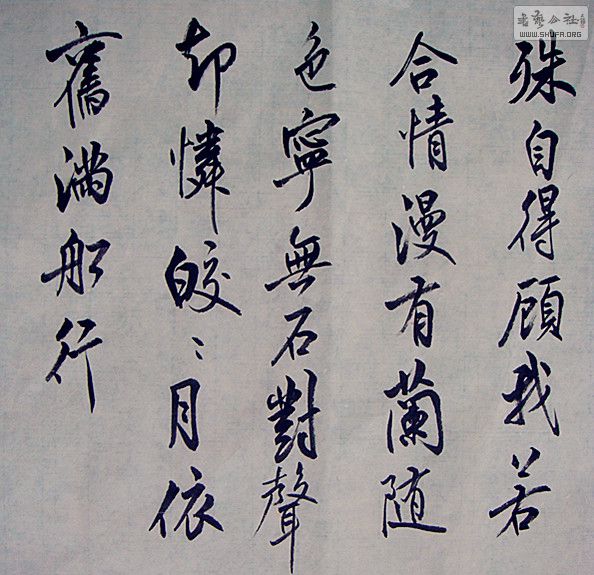 書藝公社
WWW.SHUFA.ORG
殊自得顾我若
合情漫有蘭随
色寧無石對聲
却憐皎〻月依
舊滿船行